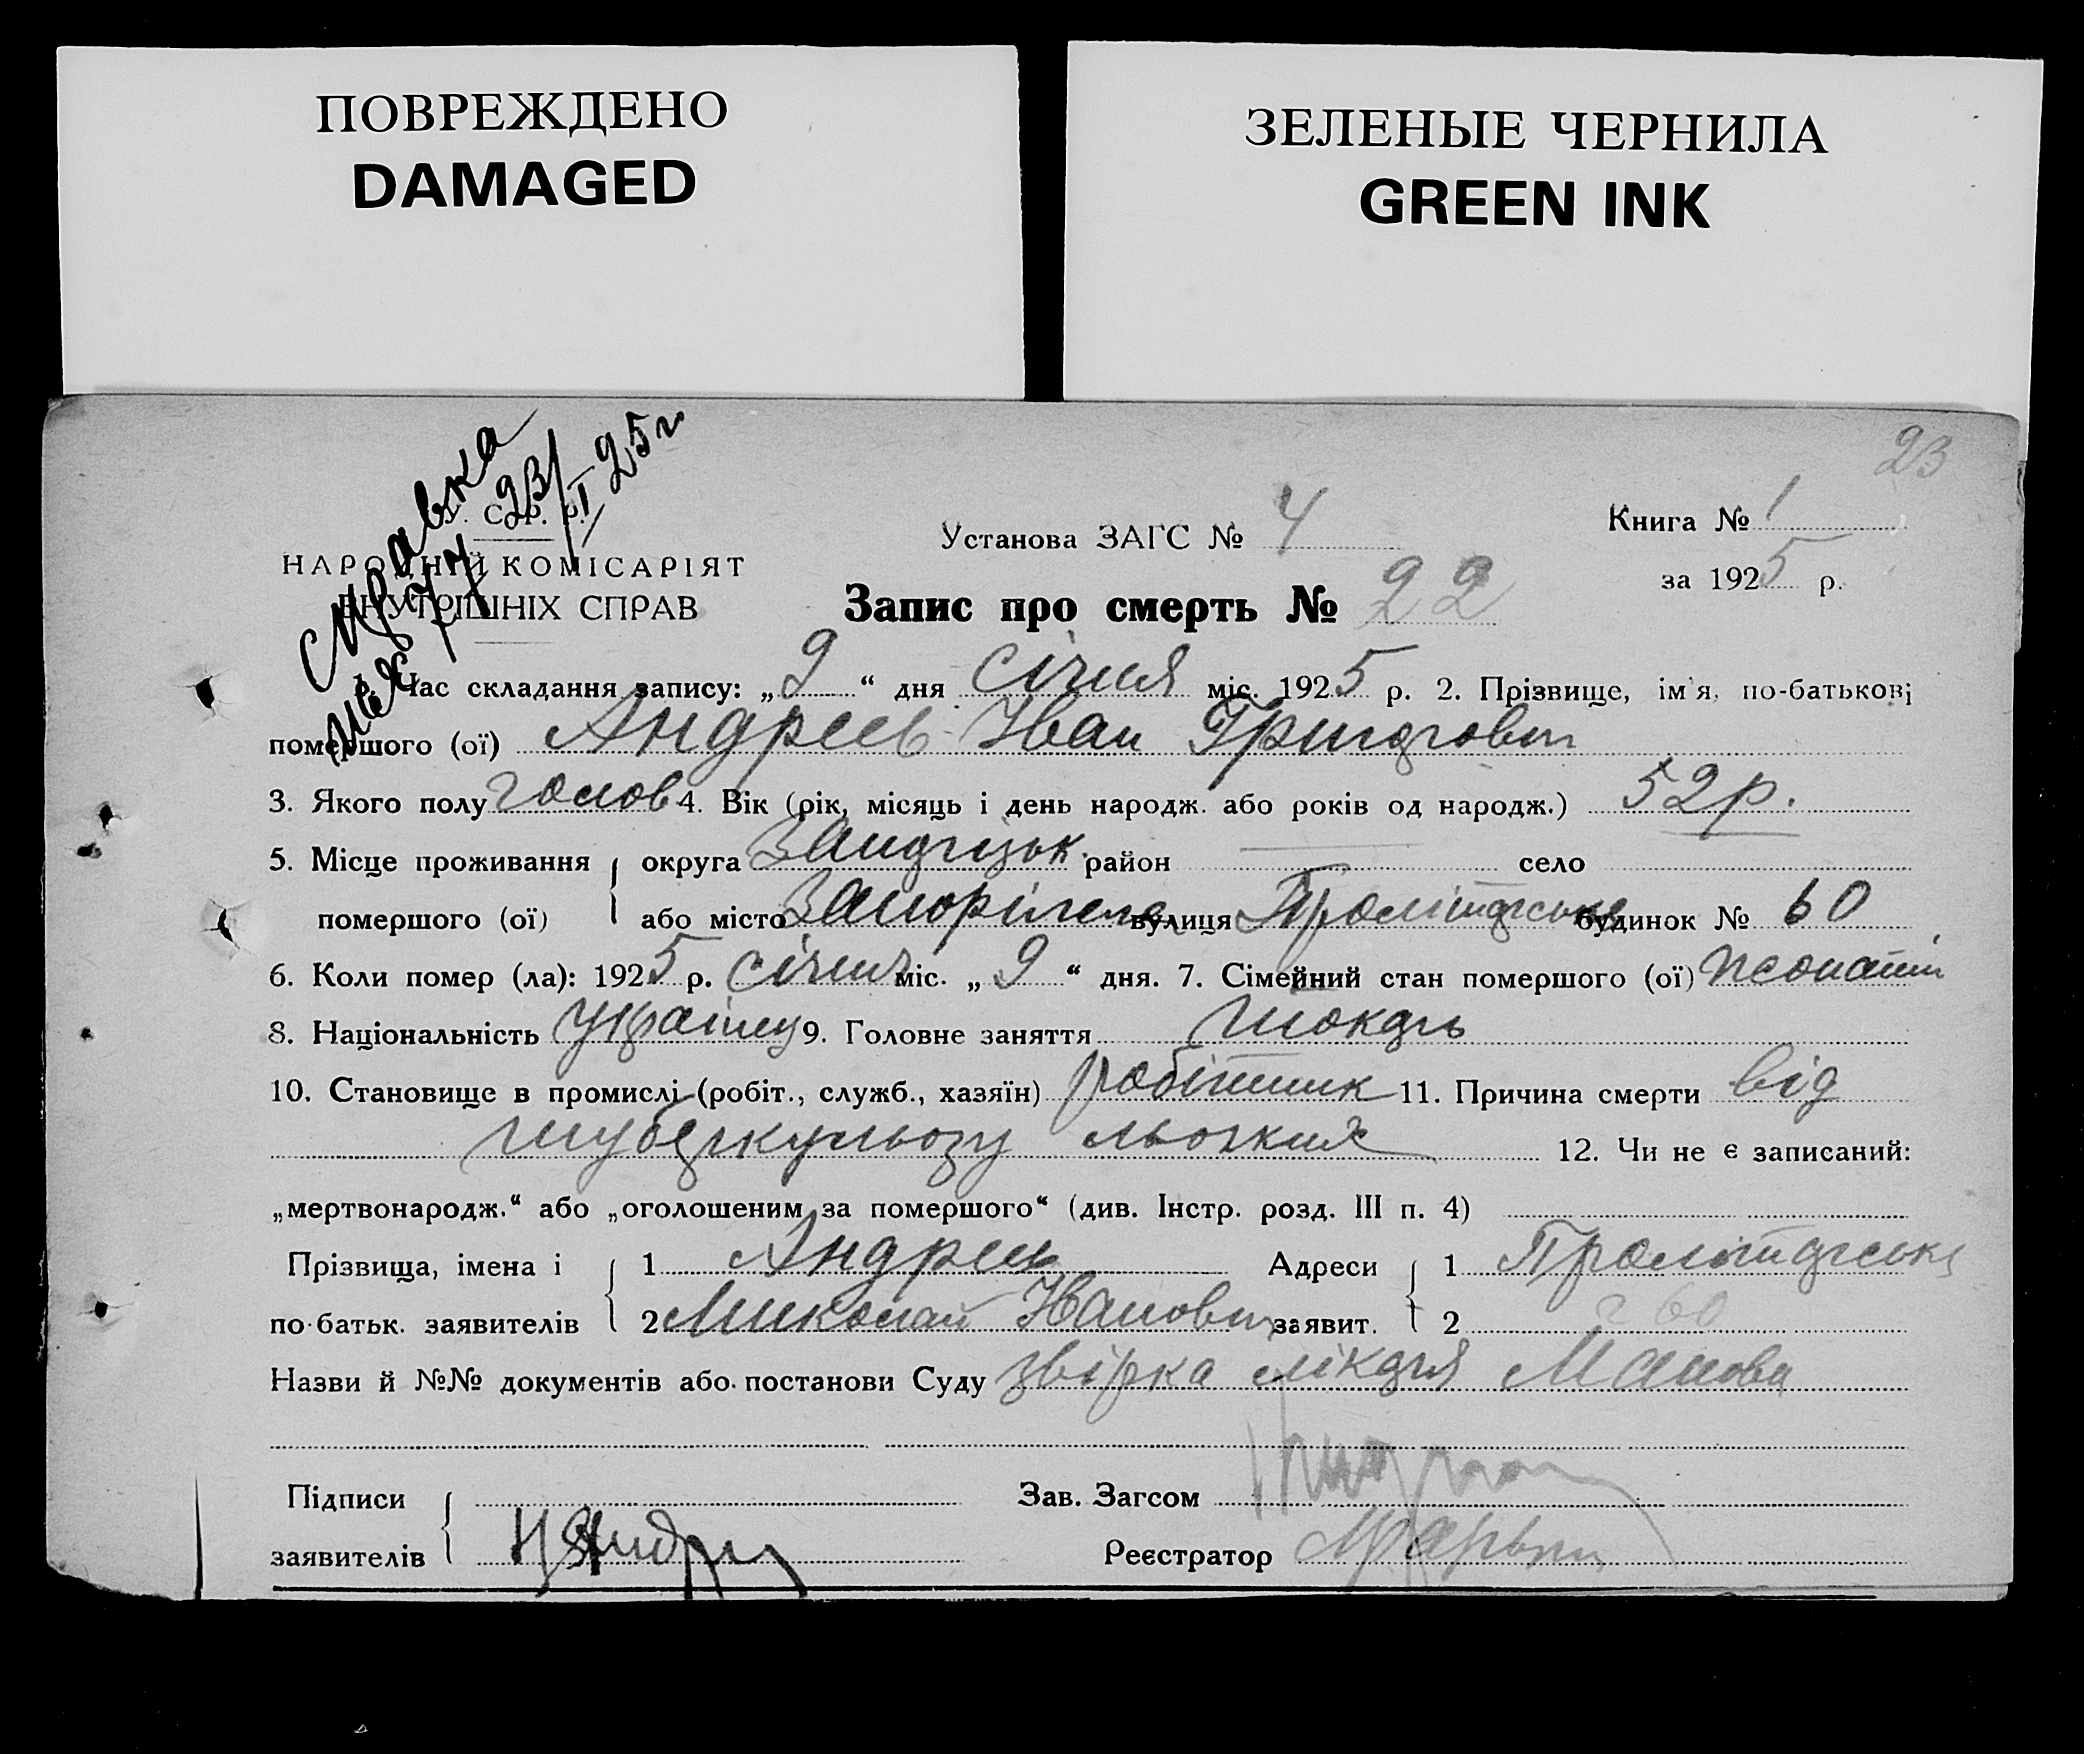 ПОВРЕЖДЕНО
DAMAGED
ЗЕЛЕНЫЕ ЧЕРНИЛА
GREEN INK
23
Справка
23/I 25 г
У. С. Р. Р.
НАРОДНІЙ КОМІСАРІЯТ
ВНУТРІШНІХ СПРАВ
Установа ЗАГС № 4
Книга № 1
за 1925 р.
Запис про смерть № 22
1. Час складання запису: „9“ дня січня міс. 1925 р. 2. Прізвище, ім'я, по-батькові
помершого (ої) Андреев Іван Григорович
3. Якого полу чолов 4. Вік (рік, місяць і день народж. або років од народж.) 52 р.
5. Місце проживання округа Запорізьк. район село
помершого (ої) або місто Запоріжжя вулиця Пролітарська будинок № 60
6. Коли помер (ла): 1925 р. січня міс. „9“ дня. 7. Сімейний стан помершого (ої) жонатий
8. Національність українец 9. Головне заняття токарь
10. Становище в промислі (робіт., служб., хазяїн) робітник 11. Причина смерти від
туберкульозу льогких 12. Чи не є записаний:
„мертвонародж.“ або „оголошеним за помершого“ (див. Інстр. розд. III п. 4)
Прізвища, імена і 1 Андреев Адреси 1 Пролітарська
по-батьк. заявителів 2 Миколай Іванович заявит. 2 60
Назви й №№ документів або постанови Суду звірка лікаря
Підписи Зав. Загсом
заявителів Реєстратор